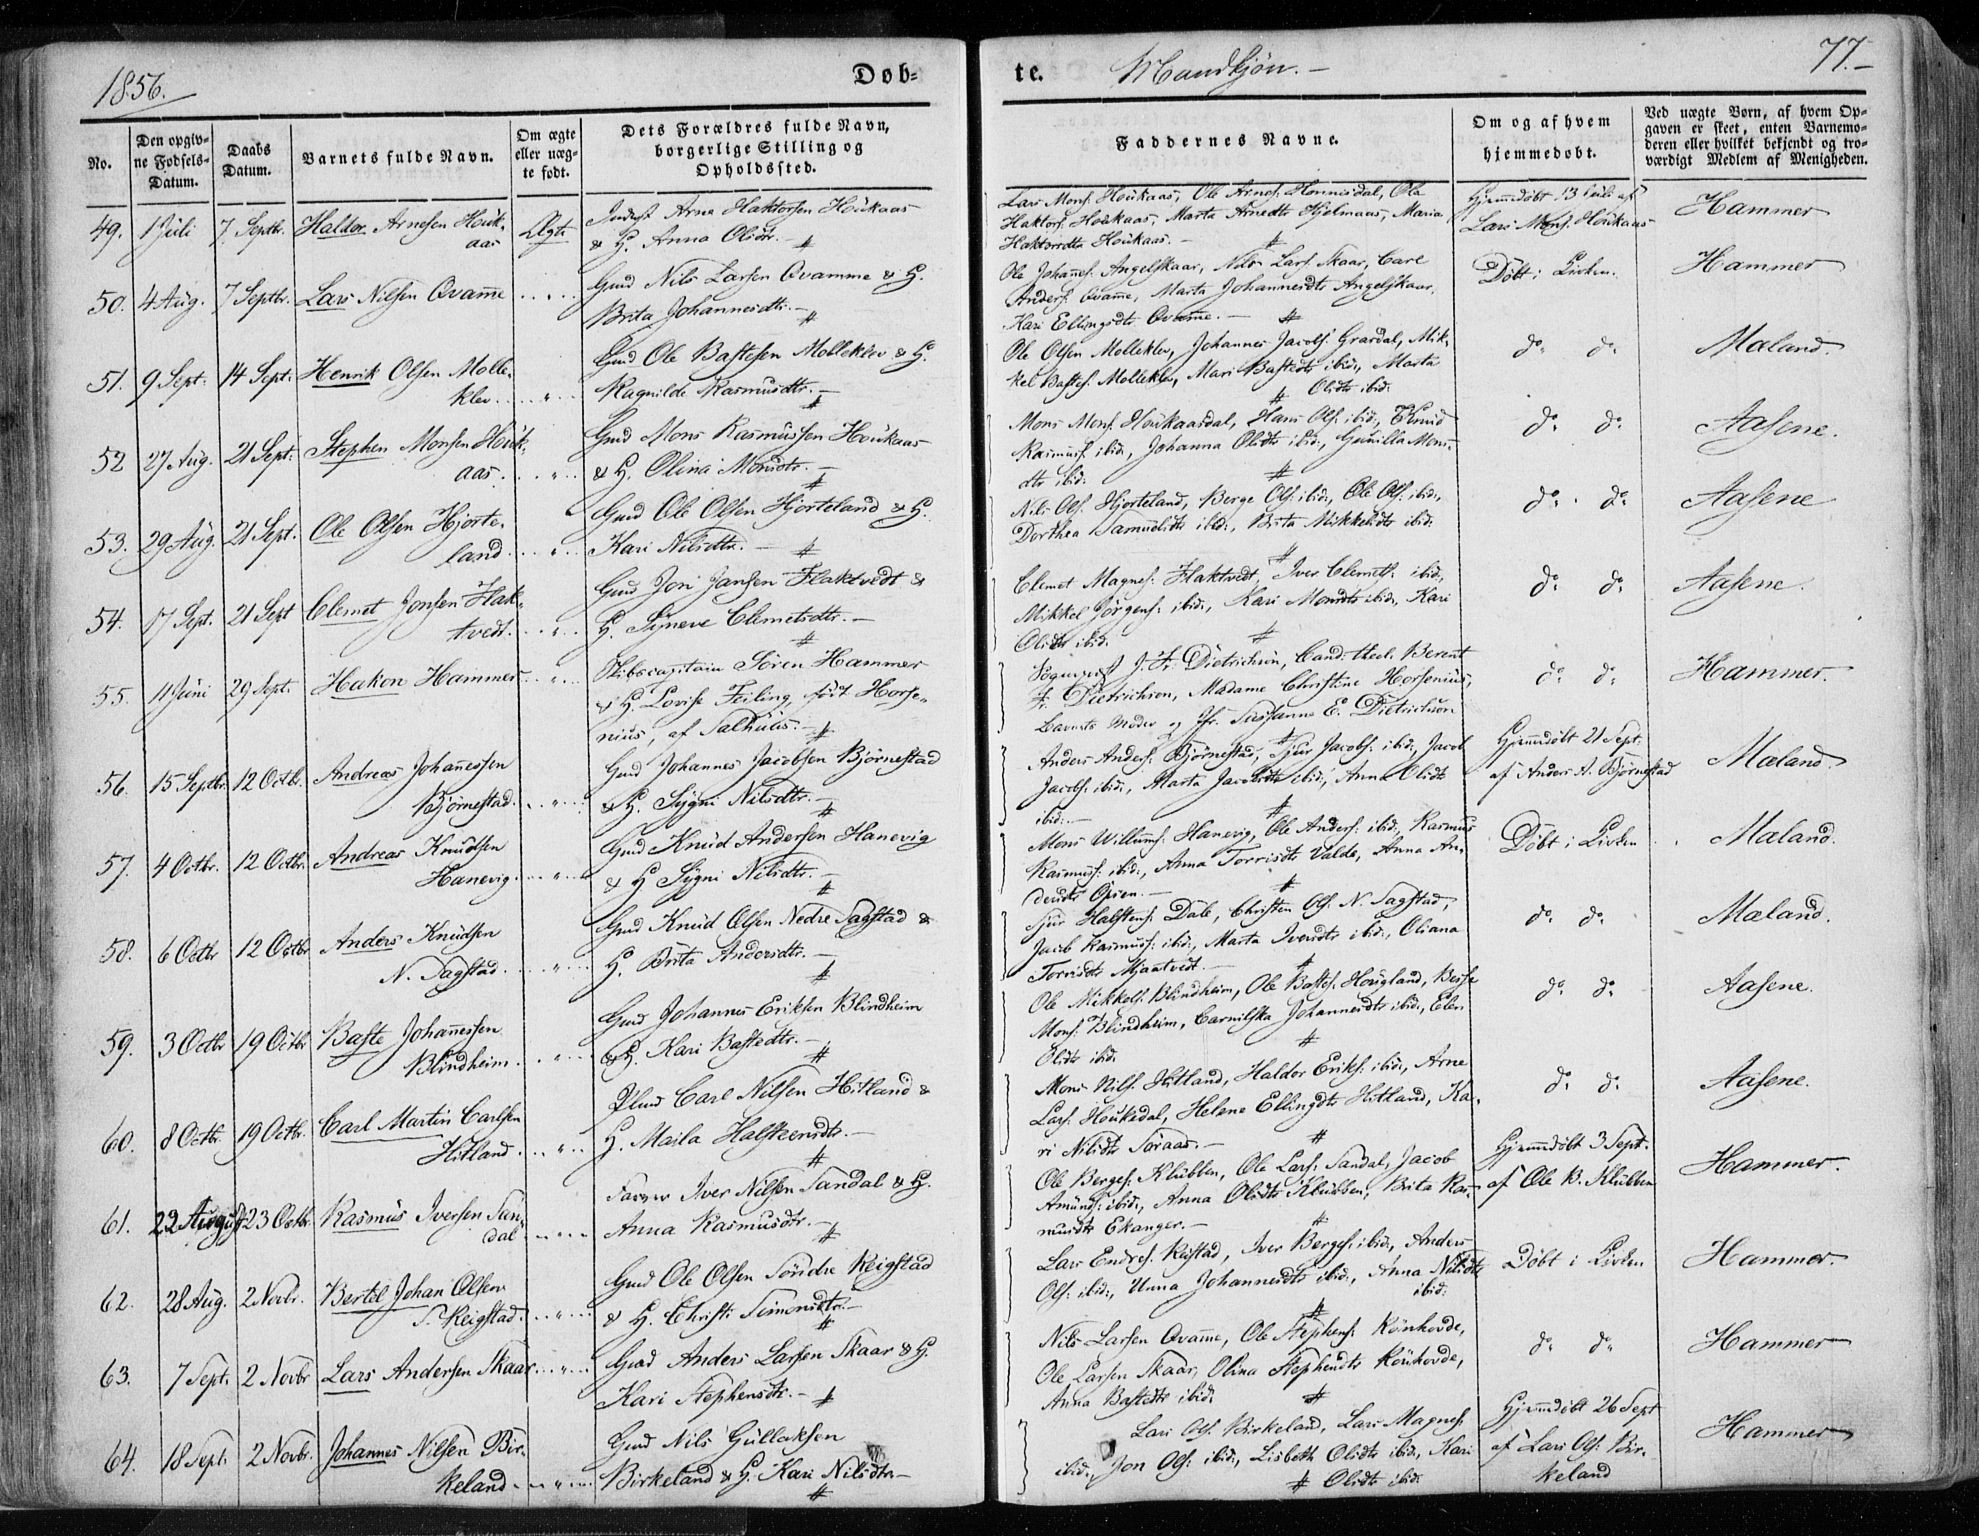 1856.
Døb=
te. Mandkjøn.
77.
No.
Den opgiv-
ne Fødsels-
Datum.
Daabs
Datum.
Barnets fulde Navn.
Om ægte
eller uæg-
te født.
Dets Forældres fulde Navn,
borgerlige Stilling og
Opholdssted.
Faddernes Navne.
Om og af hvem
hjemmedøbt.
Ved uægte Børn, af hvem Op-
gaven er skeet, enten Barnemo-
deren eller hvilket bekjendt og tro-
værdigt Medlem af Menigheden.
49. 1 Juli 7 Septbr. Haldor Arnesen Houk-
aas Ægte
Arne Haktorsen Houkaas
& H. Anna Olidtr.
Lars Mons. Houkaas, Ole Arnes. Hommisdal, Ole
Haktors. Houkaas, Marta Arnedtr Hjelmaas, Maria
Haktorsdtr Houkaas.
Hjemmedøbt 13 Juli af
Lars Mons. Houkaas
Hammer
50. 4 Aug. 7 Septbr. Lars Nilsen Qvamme
Gmd Nils Larsen Qvamme & H.
Brita Johannesdtr.
Ole Johannes. Angelskaar, Nils Lars. Skaar, Care
Anders. Qvamme, Marta Johannesdtr Angelskaar,
Kari Ellingsdtr Qvamme.
Døbt i Kirken.
Hammer
51. 9 Sept. 14 Sept. Henrik Olsen Molle-
klev
Gmd Ole Bastesen Molleklev & H.
Ragnilde Rasmusdtr.
Ole Olsen Molleklev, Johannes Jacobs. Grasdal, Mik-
kel Bastes. Molleklev, Mari Bastedtr ibid., Marta
Olidtr ibid.
do. do.
Mæland.
52 27 Aug. 21 Sept. Stephen Monsen Houk-
aas.
Gmd Mons Rasmussen Houkaas
& H. Olina Monsdtr.
Mons Mons. Houkaasdal, Hans Ols. ibid., Knud
Rasmus. ibid., Johanna Olidtr ibid., Gunilla Mons-
dtr ibid.
do. do.
Aasene.
53. 29 Aug. 21 Sept. Ole Olsen Hjorte-
land
Gmd Ole Olsen Hjorteland & H.
Kari Nilsdtr.
Nils Ols. Hjorteland, Berge Ols. ibid., Ole Ols. ibid.,
Dorthea Samuelsdtr ibid., Brita Mikkelsdtr ibid.
do. do.
Aasene
54. 17 Sept. 21 Sept Clemet Jonsen Hak-
tvedt.
Gmd Jon Jansen Haktvedt &
H. Syneve Clemetsdtr.
Clemet Magnes. Haktvedt, Iver Clemets. ibid.,
Mikkel Jørgens. ibid., Kari Monsdtr ibid., Kari
Olidtr ibid.
do. do.
Aasene.
55. 11 Juni 29 Sept. Hakon Hammer
Skibscapitain Søren Hammer
& H. Lovise Feiling, født Horse-
nius, af Salhuus.
Sognepræst J. Fr. Dietrichson, Cand. theol. Berent
F. Dietrichson, Madame Christine Horsenius,
Barnets Moder og Jfr. Susanne E. Dietrichson
do. do.
Hammer.
56. 15 Septbr. 12 Octbr. Andreas Johannessen
Bjørnestad.
Gmd Johannes Jacobsen Bjørnestad
& H. Sygni Nilsdtr.
Anders Anders. Bjørnestad, Sjur Jacobs. ibid., Jacob
Jacobs. ibid., Marta Jacobsdtr ibid., Anna Olidtr
ibid.
Hjemmedøbt 21 Sept.
af Anders A. Bjørnestad
Mæland.
57. 4 Octbr. 12 Octbr. Andreas Knudsen
Hanevig.
Gmd Knud Andersen Hanevig
& H. Sygni Nilsdtr.
Mons Willums. Hanevig, Ole Anders. ibid., Rasmus
Rasmus. ibid., Anna Torrisdtr Valde, Anna An-
dersdtr Opsen.
Døbt i Kirken
Mæland.
58. 6 Octbr 12 Octbr Anders Knudsen
N. Sagstad.
Gmd Knud Olsen Nedre Sagstad &
H. Brita Andersdtr.
Sjur Halstens. Dale, Christen Ols. N. Sagstad,
Jacob Rasmus. ibid., Marta Iversdtr ibid., Oliana
Torrisdtr Mjaatvedt.
do. do.
Mæland.
59. 3 Octbr 19 Octbr Baste Johannessen
Blindheim.
Gmd Johannes Eriksen Blindheim
& H. Kari Bastedtr.
Ole Mikkels. Blindheim, Ole Bastes. Hougland, Besse
Mons. Blindheim, Carnilska Johannesdtr ibid., Elen
Olidtr ibid.
do. do.
Aasene.
60. 8 Octbr. 19 Octbr. Carl Martin Carlsen
Hitland.
Carl Nilsen Hitland &
H. Maila Halstensdtr.
Mons Nils. Hitland, Haldor Eriks. ibid., Arne
Lars. Houkedal, Helene Ellingsdtr Hitland, Ka-
ri Nilsdtr Søraas.
do. do.
Aasene.
61. 22 August 23 Octbr. Rasmus Iversen San-
dal
Iver Nilsen Sandal & H.
Anna Rasmusdtr.
Ole Berges. Klubben, Ole Lars. Sandal, Jacob
Amunds. ibid., Anna Olidtr Klubben, Brita Ras-
musdtr Ekanger.
Hjemmedøbt 3 Sept.
af Ole B. Klubben
Hammer.
62. 28 Aug. 2 Novbr. Bertel Johan Olsen
S. Reigstad.
Gmd Ole Olsen Søndre Reigstad
& H. Christi Simonsdtr.
Lars Endres. Reistad, Iver Berges. ibid., Anders
Ols. ibid., Unna Johannesdtr ibid., Anna Nilsdtr
ibid.
Døbt i Kirken
Hammer.
63. 7 Sept. 2 Novbr Lars Andersen Skaar
Gmd Anders Larsen Skaar & H.
Kari Stephensdtr.
Nils Larsen Qvamme, Ole Stephens. Rønhovde,
Ole Larsen Skaar, Olina Stephensdtr Rønhovde,
Anna Bastedtr ibid.
do. do.
Hammer
64. 18 Sept. 2 Novbr. Johannes Nilsen Bir-
keland
Gmd Nils Gullaksen
Birkeland & H. Kari Nilsdtr
Lars Ols. Birkeland, Lars Magnes.
ibid., Jon Ols. ibid., Lisbeth Olidtr ibid., Kari
Olidtr ibid.
Hjemmedøbt 26 Sept
af Lars Ols. Bir-
keland
Hammer